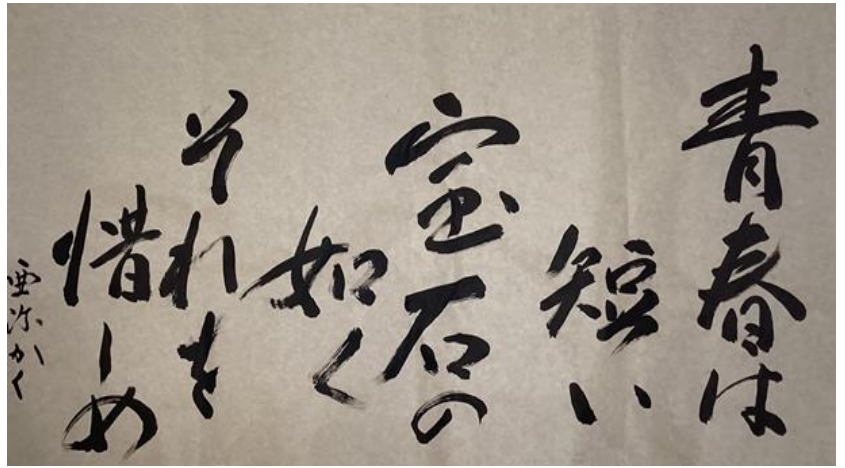 青春は
短い
宝石の
如く
それを
惜しめ
亜弥かく